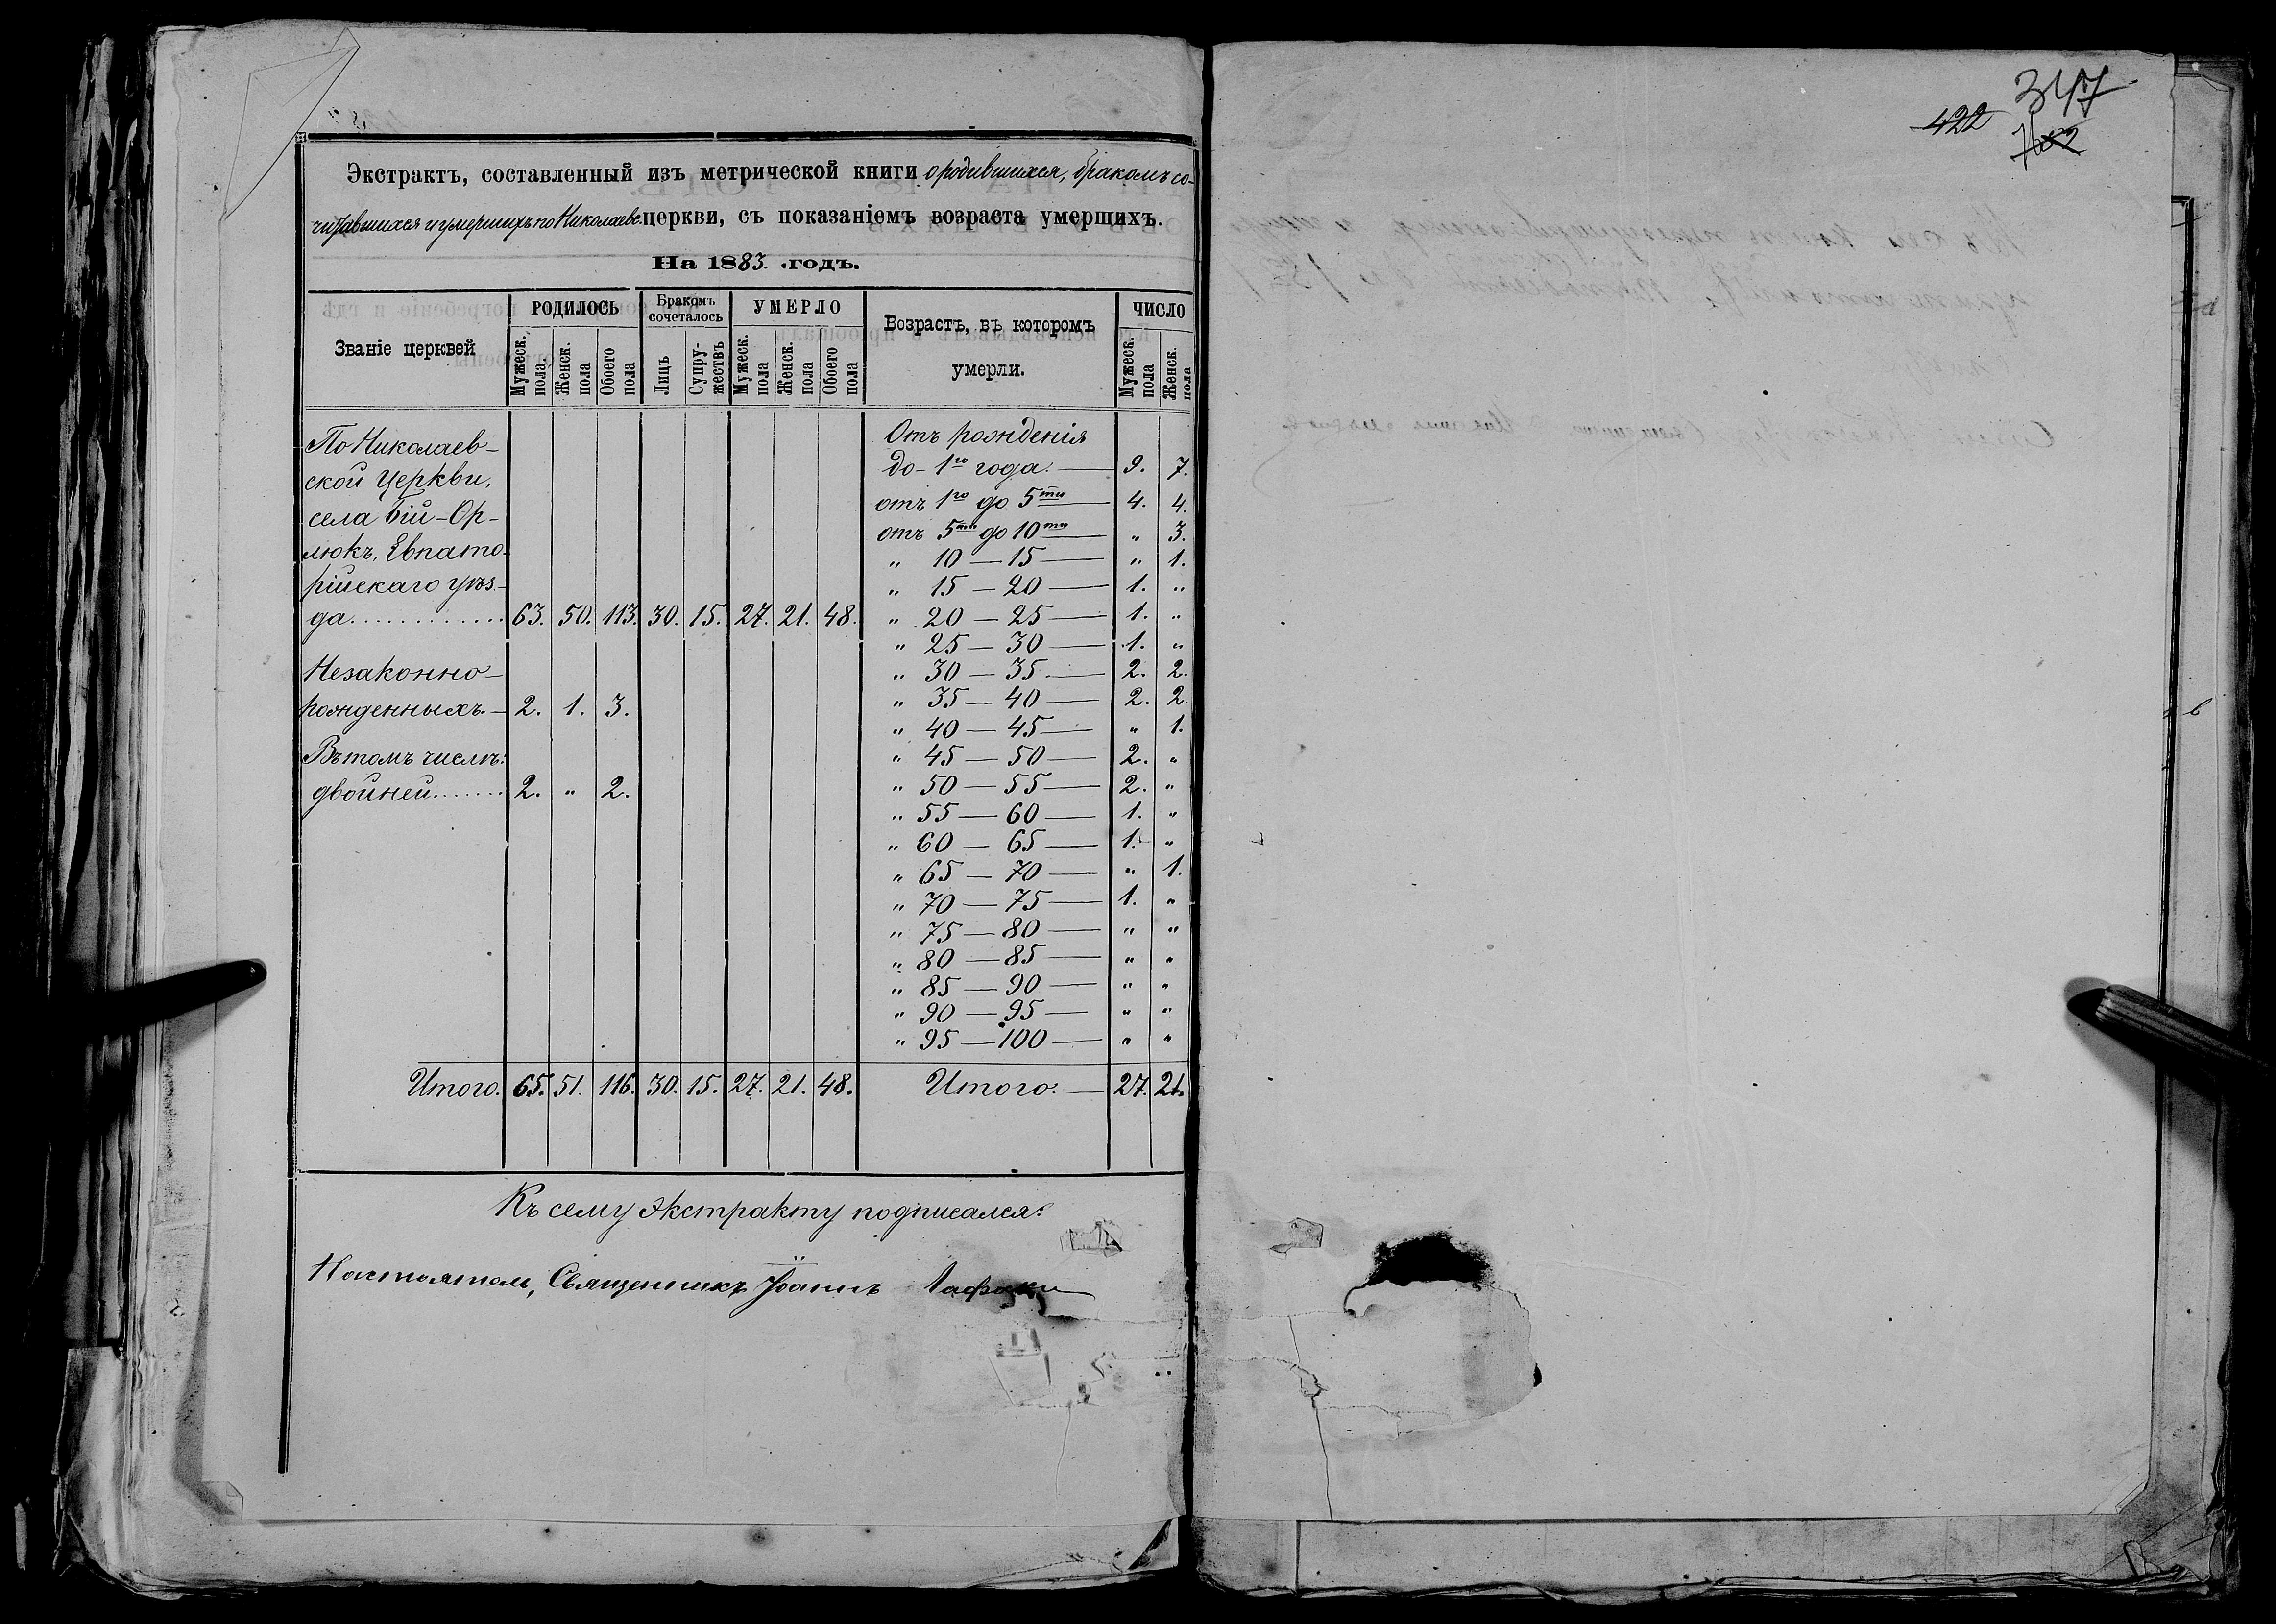 Экстрактъ, составленный изъ метрической книги о родившихся, бракомъ со-
читавшихся и умершихъ по Николаевс. церкви, съ показаніемъ возраста умершихъ.
На 1883 годъ.
Званіе церквей
РОДИЛОСЬ
Мужеск. пола.
Женск. пола
Обоего пола
Бракомъ сочеталось
Лицъ
Супру-жествъ
УМЕРЛО
Мужеск. пола
Женск. пола
Обоего пола
Возрастъ, въ которомъ
умерли.
ЧИСЛО
Мужеск. пола
Женск. пола
По Николаев-
ской Церкви,
села Бій-Ор-
люкъ, Евпато-
рійскаго уѣз-
да............ 63. 50. 113. 30. 15. 27. 21. 48.
Незаконно-
рожденныхъ.— 2. 1. 3.
Въ томъ числѣ:
двойней....... 2. " 2.
Отъ рожденія
до 1го года.— 9. 7.
отъ 1го до 5ти — 4. 4.
отъ 5ти до 10ти — " 3.
" 10 — 15 — " 1.
" 15 — 20 — 1. "
" 20 — 25 — 1. "
" 25 — 30 — 1. "
" 30 — 35 — 2. 2.
" 35 — 40 — 2. 2.
" 40 — 45 — " 1.
" 45 — 50 — 2. "
" 50 — 55 — 2. "
" 55 — 60 — 1. "
" 60 — 65 — 1. "
" 65 — 70 — " 1.
" 70 — 75 — 1. "
" 75 — 80 — " "
" 80 — 85 — " "
" 85 — 90 — " "
" 90 — 95 — " "
" 95 — 100 — " "
Итого. 65. 51. 116. 30. 15. 27. 21. 48. Итого. — 27. 21.
Къ сему экстракту подписался:
Настоятель, Священникъ Іоаннъ
347
422